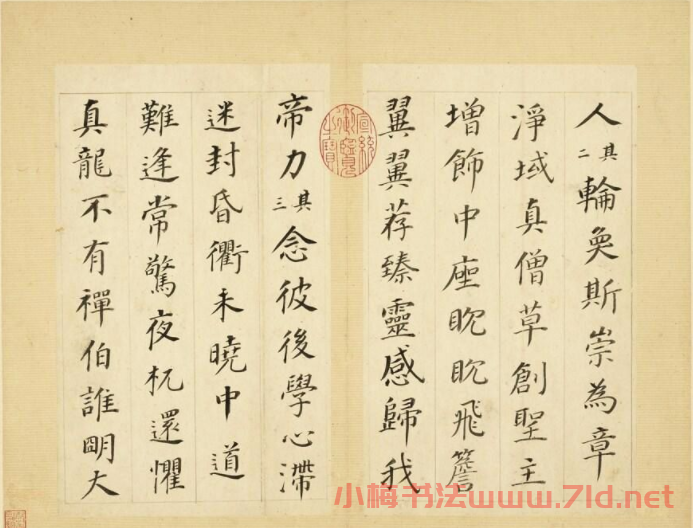 人其二輪奐斯崇為章
淨域真僧草創聖主
增飾中座眈眈飛簷
翼翼荐臻靈感歸我
帝力其三念彼後學心滯
迷封昏衢未曉中道
難逢常驚夜枕還懼
真龍不有禪伯誰明大
宣統御覽之寶
小梅书法www.7ld.net